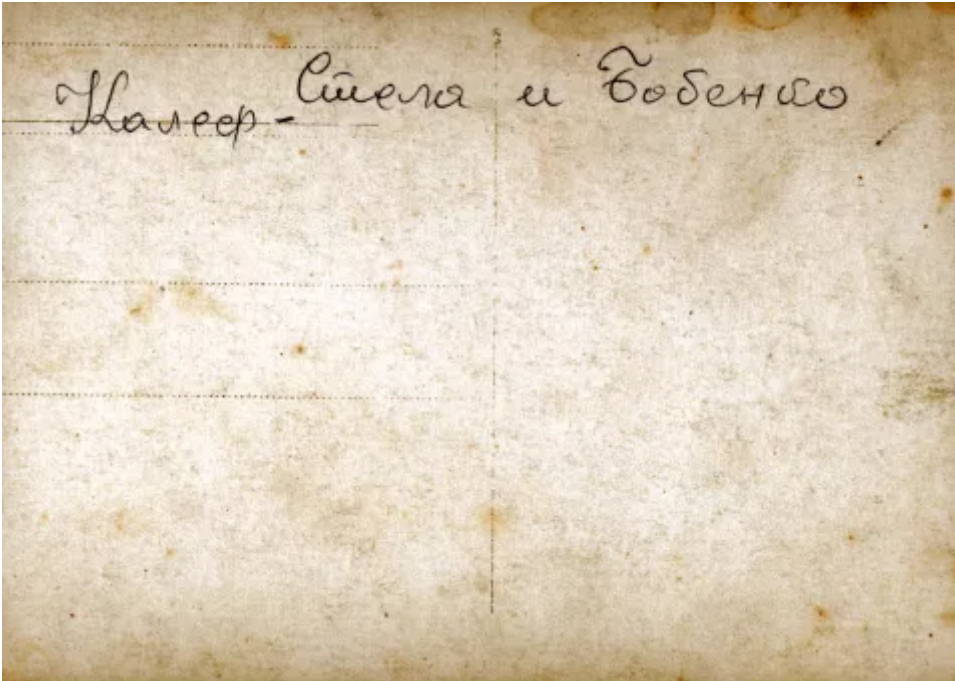 Калеф - Стела и Бобенко